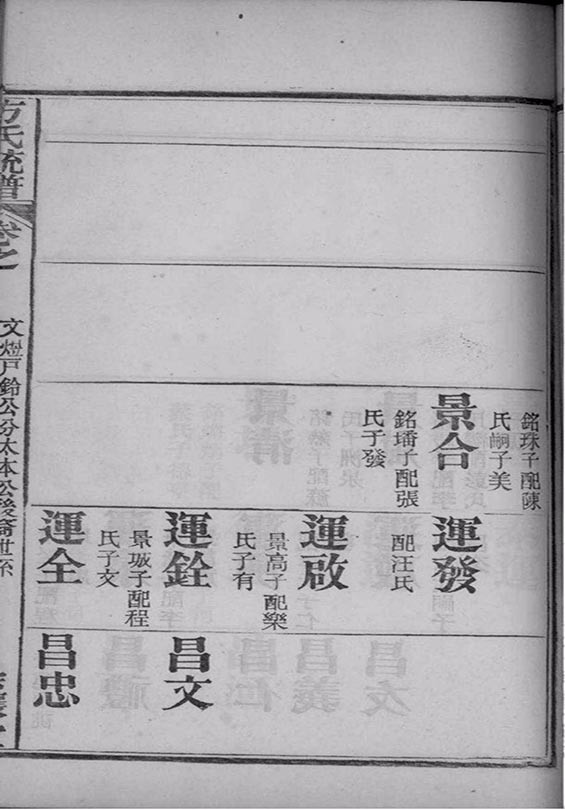 銘珠子配陳
氏嗣子美
景合
銘璠子配張
氏子發
運發
配汪氏
運啟
景高子配樂
氏子有
運銓
景城子配程
氏子文
運全
昌文
昌忠
方氏統譜
卷之
文燈戶鈴公分太本公後裔世系